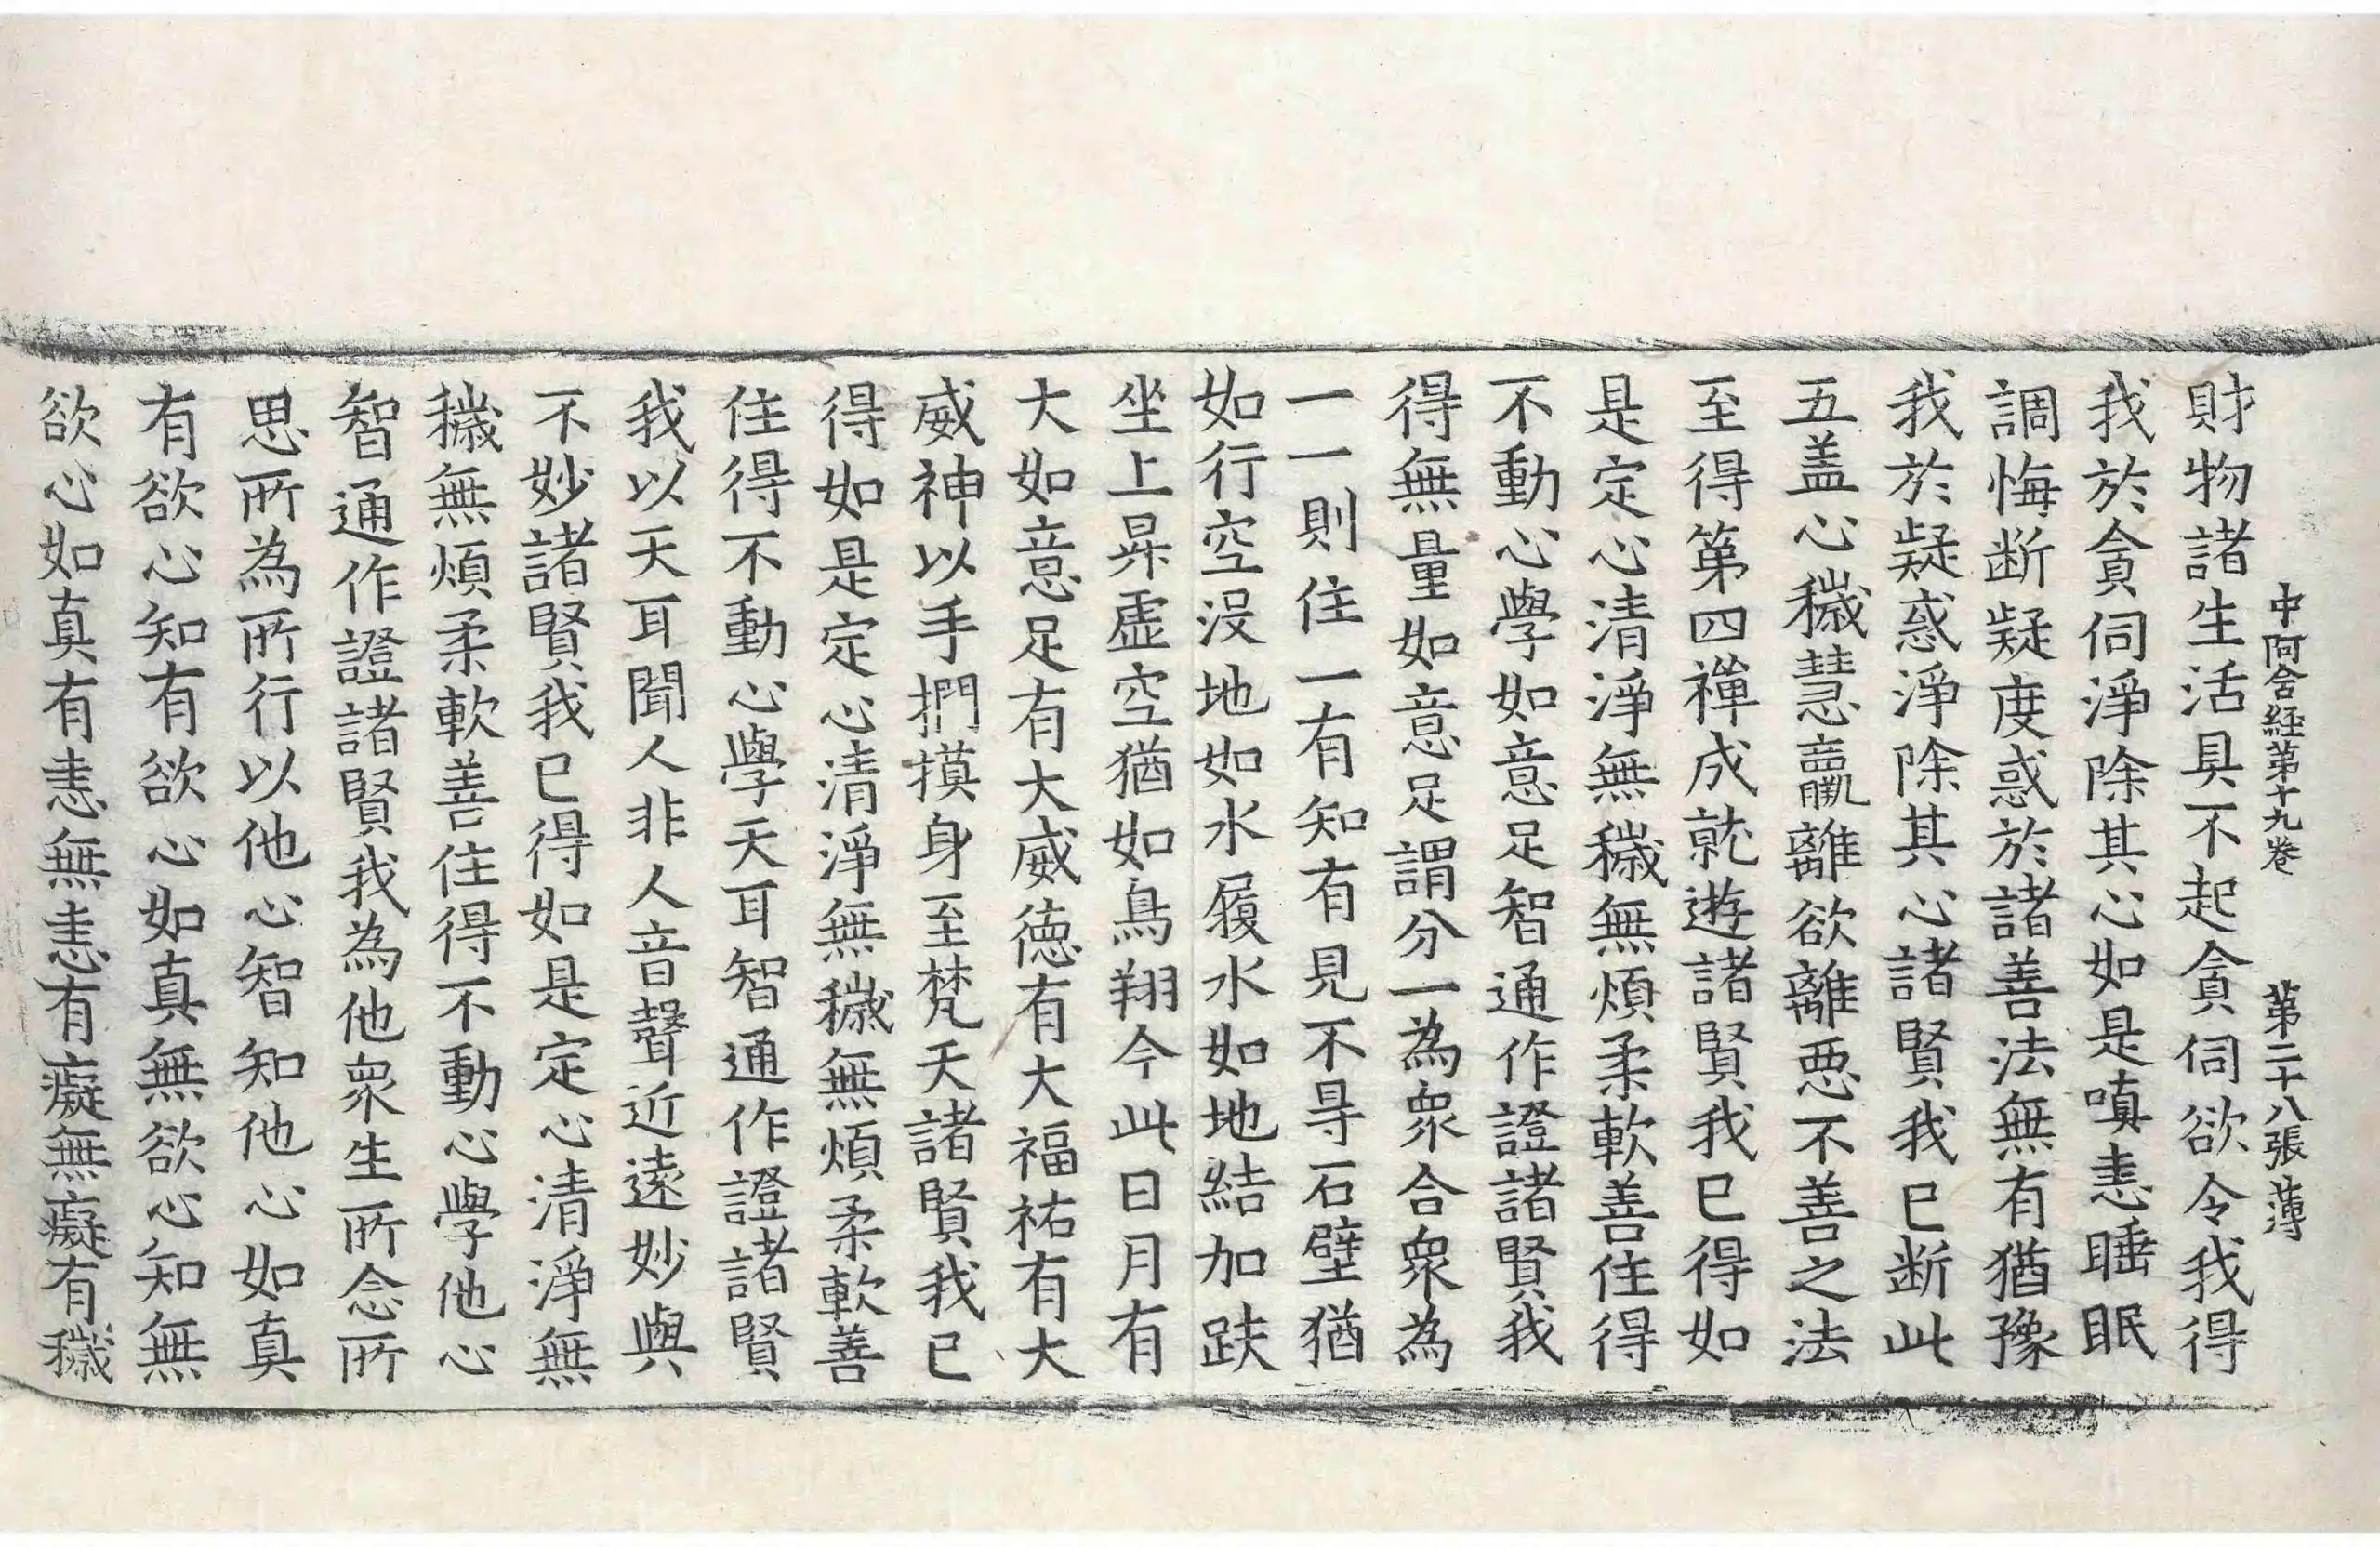 中阿含経第十九卷　第二十八張　薄
財物諸生活具不起貪伺欲令我得
我於貪伺淨除其心如是嗔恚睡眠
調悔断疑度惑於諸善法無有猶豫
我於疑惑淨除其心諸賢我已断此
五盖心穢慧羸離欲離惡不善之法
至得第四禪成就遊諸賢我已得如
是定心清淨無穢無煩柔軟善住得
不動心學如意足智通作證諸賢我
得無量如意足謂分一為衆合衆為
一一則住一有知有見不㝵石壁猶
如行空没地如水履水如地結加趺
坐上昇虛空猶如鳥翔今此日月有
大如意足有大威德有大福祐有大
威神以手捫摸身至梵天諸賢我已
得如是定心清淨無穢無煩柔軟善
住得不動心學天耳智通作證諸賢
我以天耳聞人非人音聲近遠妙與
不妙諸賢我已得如是定心清淨無
穢無煩柔軟善住得不動心學他心
智通作證諸賢我為他衆生所念所
思所為所行以他心智知他心如真
有欲心知有欲心如真無欲心知無
欲心如真有恚無恚有癡無癡有穢